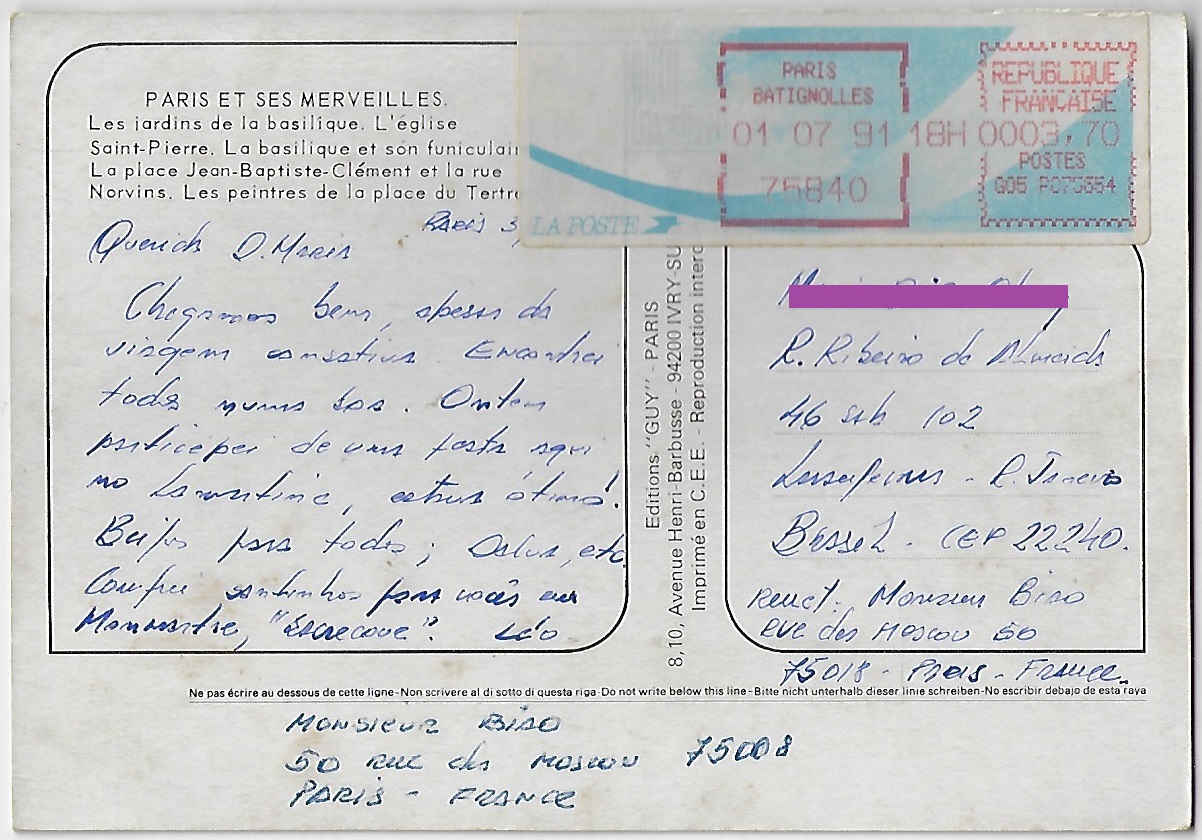 PARIS ET SES MERVEILLES.
Les jardins de la basilique. L'église
Saint-Pierre. La basilique et son funiculair
La place Jean-Baptiste-Clément et la rue
Norvins. Les peintres de la place du Tertre
PARIS
BATIGNOLLES
01 07 91 18H
75840
REPUBLIQUE
FRANÇAISE
0003,70
POSTES
G05 PC75654
LA POSTE
Paris 3
Querida D. Maria
Chegamos bem, apesar da
viagem cansativa. Encontrei
todos numa boa. Ontem
participei de uma festa aqui
no Lamartine, estava ótima!
Beijos para todos; , etc
Comprei santinhos para vocês em
Monmartre, "Sacrecoue". Léo
Editions "GUY" - PARIS
8, 10, Avenue Henri-Barbusse - 94200 IVRY-SU
Imprimé en C.E.E. - Reproduction interd
R. Ribeiro de Almeida
46 102
Laranjeiras - R. Janeiro
Brasil - CEP 22240.
Monsieur Biso
rue des Moscou 50
75018 - Paris - France
Ne pas écrire au dessous de cette ligne-Non scrivere al di sotto di questa riga-Do not write below this line-Bitte nicht unterhalb dieser linie schreiben-No escribir debajo de esta raya
MONSIEUR BISO
50 rue des Moscou 75008
PARIS - FRANCE